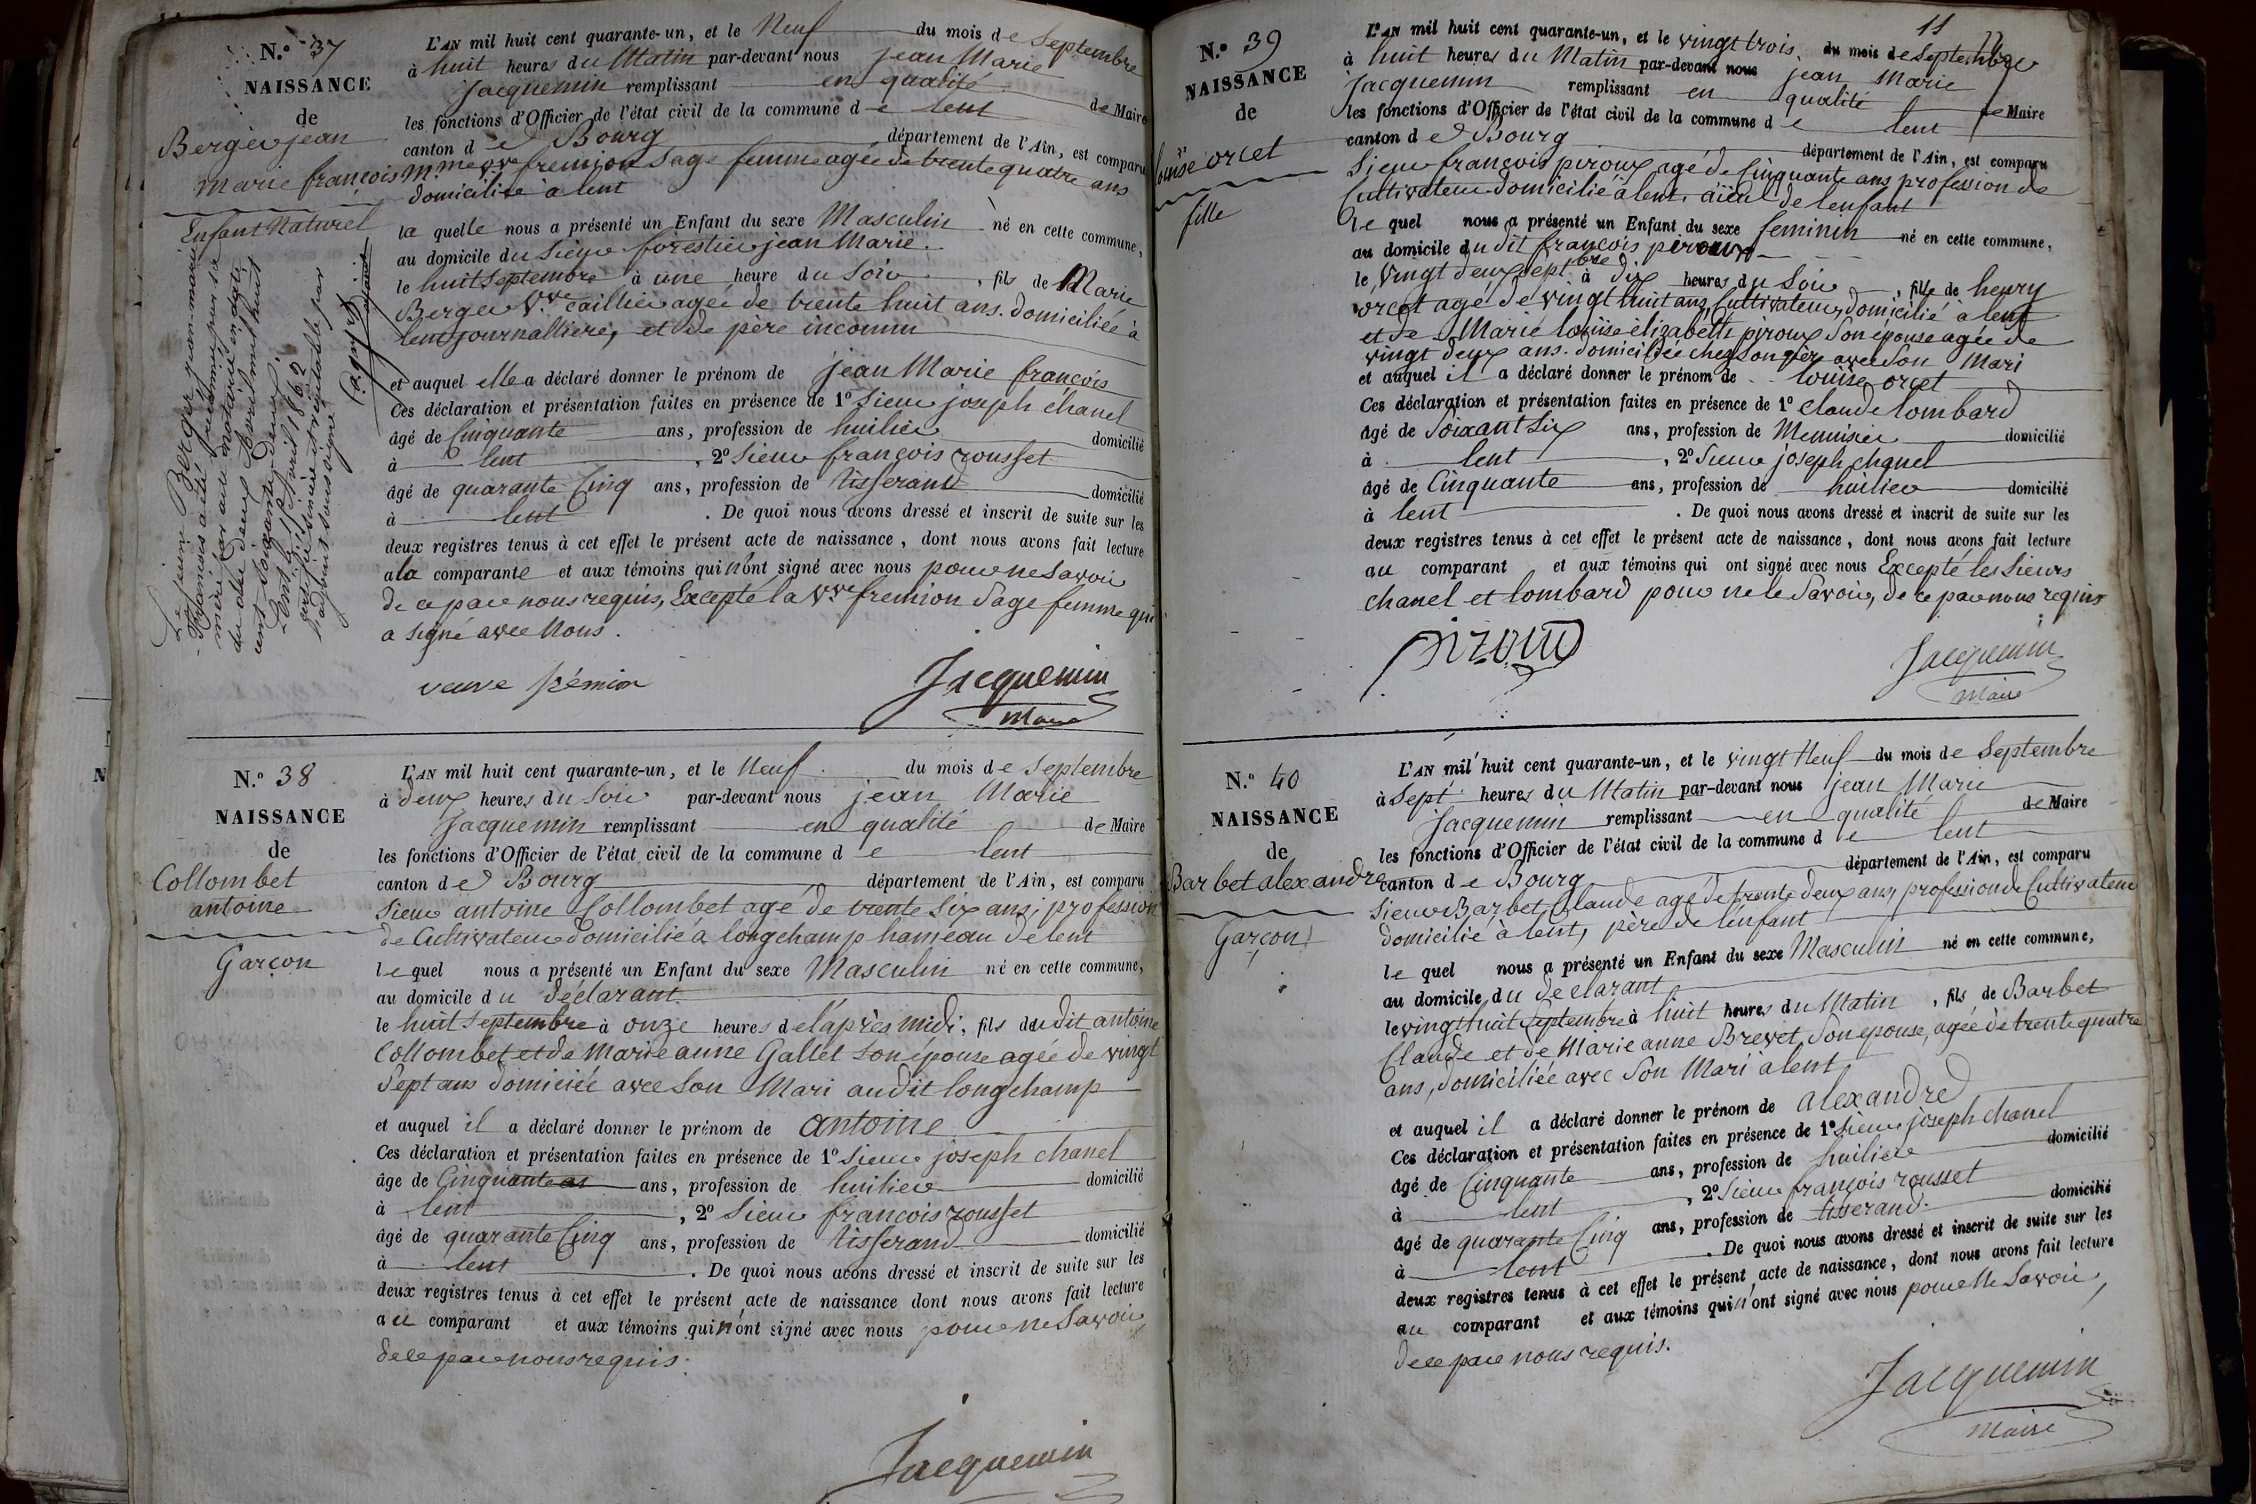 N.º 37
NAISSANCE
de
Berger jean
Marie françois
Enfant Naturel
L'AN mil huit cent quarante-un, et le Neuf du mois de Septembre
à huit heures du Matin par-devant nous jean Marie
Jacquemin remplissant en qualité de Maire
les fonctions d'Officier de l'état civil de la commune de lent
canton de Bourg département de l'Ain, est comparu
Mme Vve fremion Sage femme agée de trente quatre ans
domiciliée à lent
la quelle nous a présenté un Enfant du sexe Masculin né en cette commune,
au domicile du Sieur forestier jean Marie.
le huit Septembre à une heure du Soir, fils de Marie
Berger Vve caillier agée de trente huit ans. domiciliée à
lent journalliere, et de père inconnu
et auquel elle a déclaré donner le prénom de jean Marie françois
Ces déclaration et présentation faites en présence de 1º Sieur joseph chanel
âgé de Cinquante ans, profession de huilier domicilié
à lent, 2º Sieur françois rousset
âgé de quarante Cinq ans, profession de tisserand domicilié
à lent. De quoi nous avons dressé et inscrit de suite sur les
deux registres tenus à cet effet le présent acte de naissance, dont nous avons fait lecture
a la comparante et aux témoins qui n'ont signé avec nous pour ne Savoir
de ce par nous requis, Excepté la Vve fremion Sage femme qui
a signé avec Nous.
veuve frémion
Jacquemin
Maire
Le jeune Berger jean-marie
François a été
mère par acte notarié en date
du deux Avril mil huit
cent soixante deux.
Lent le 12 Avril 1862
N.º 38
NAISSANCE
de
Collombet
antoine
Garçon
L'AN mil huit cent quarante-un, et le Neuf du mois de Septembre
à deux heures du Soir par-devant nous jean Marie
Jacquemin remplissant en qualité de Maire
les fonctions d'Officier de l'état civil de la commune de lent
canton de Bourg département de l'Ain, est comparu
Sieur antoine Collombet agé de trente Six ans; profession
de Cultivateur domicilié a longchamp hameau de lent
le quel nous a présenté un Enfant du sexe Masculin né en cette commune,
au domicile du déclarant
le huit Septembre à onze heures de l'après midi, fils du dit antoine
Collombet et de Marie anne Gallet son épouse agée de vingt
Sept ans domiciée avec Son Mari au dit longchamp
et auquel il a déclaré donner le prénom de antoine
Ces déclaration et présentation faites en présence de 1º Sieur joseph chanel
âge de Cinquante ans, profession de huilier domicilié
à lent, 2º Sieur francois rousset
âgé de quarante Cinq ans, profession de tisserand domicilié
à lent. De quoi nous avons dressé et inscrit de suite sur les
deux registres tenus à cet effet le présent acte de naissance dont nous avons fait lecture
au comparant et aux témoins qui n'ont signé avec nous pour ne Savoir
de ce par nous requis.
Jacquemin
11
N.º 39
NAISSANCE
de
louise orcet
fille
L'AN mil huit cent quarante-un, et le vingt trois du mois de Septembre
à huit heures du Matin par-devant nous jean Marie
Jacquemin remplissant en qualité de Maire
les fonctions d'Officier de l'état civil de la commune de lent
canton de Bourg département de l'Ain, est comparu
Sieur françois piroux agé de Cinquante ans profession de
Cultivateur domicilié à lent, aïeul de lenfant
le quel nous a présenté un Enfant du sexe feminin né en cette commune,
au domicile du dit françois piroux
le Vingt deux Septbre à dix heures du Soir, fille de henry
orcet agé de vingt huit ans, Cultivateur, domicilié à lent
et de Marie louise élizabeth piroux Son épouse agée de
vingt deux ans. domiciliée chez Son père avec Son Mari
et auquel il a déclaré donner le prénom de louise orcet
Ces déclaration et présentation faites en présence de 1º Claude lombard
âgé de Soixant Six ans, profession de Menuisier domicilié
à lent, 2º Sieur joseph chanel
âgé de Cinquante ans, profession de huilier domicilié
à lent. De quoi nous avons dressé et inscrit de suite sur les
deux registres tenus à cet effet le présent acte de naissance, dont nous avons fait lecture
au comparant et aux témoins qui ont signé avec nous Excepté les Sieurs
chanel et lombard pour ne le Savoir, de ce par nous requis
piroud
Jacquemin
Maire
N.º 40
NAISSANCE
de
Barbet alexandre
Garçon
L'AN mil huit cent quarante-un, et le vingt Neuf du mois de Septembre
à Sept heures du Matin par-devant nous jean Marie
Jacquemin remplissant en qualité de Maire
les fonctions d'Officier de l'état civil de la commune de lent
canton de Bourg département de l'Ain, est comparu
Sieur Barbet Claude agé de trente deux ans, profession de Cultivateur
domicilié à lent, père de lenfant
le quel nous a présenté un Enfant du sexe Masculin né en cette commune,
au domicile du declarant
le vingt huit Septembre à huit heures du Matin, fils de Barbet
Claude et de Marie anne Brevet, Son epouse, agée de trente quatre
ans, domiciliée avec Son Mari à lent
et auquel il a déclaré donner le prénom de alexandre
Ces déclaration et présentation faites en présence de 1º Sieur joseph chanel
âgé de Cinquante ans, profession de huilier domicilié
à lent, 2º Sieur françois rousset
âgé de quarante Cinq ans, profession de tisserand. domicilié
à lent. De quoi nous avons dressé et inscrit de suite sur les
deux registres tenus à cet effet le présent acte de naissance, dont nous avons fait lecture
au comparant et aux témoins qui n'ont signé avec nous pour Ne Savoir,
de ce par nous requis.
Jacquemin
Maire